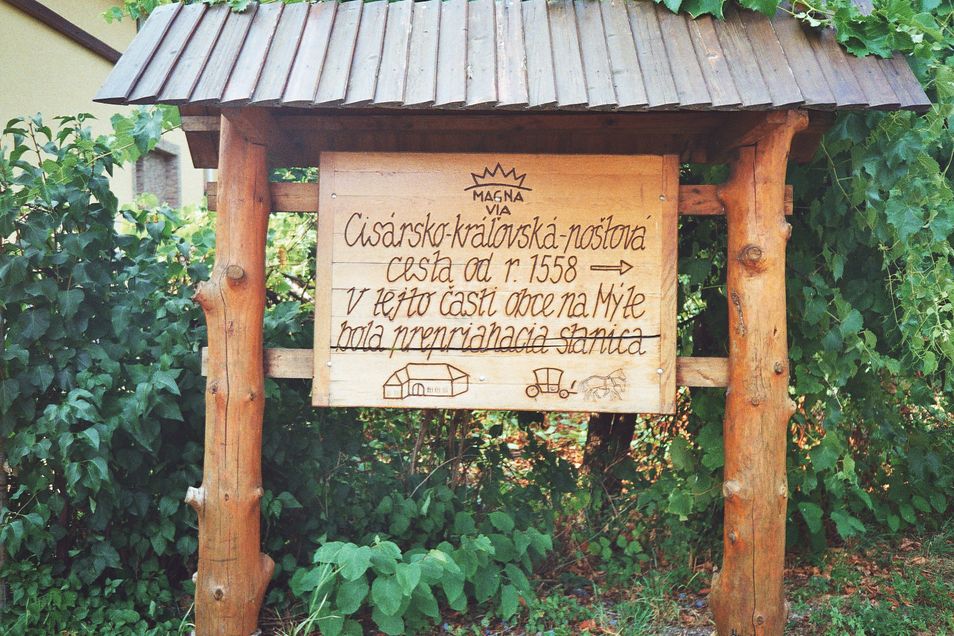 MAGNA
VIA
Cisársko-kráľovská-poštová
cesta od r. 1558 →
V tejto časti obce na Mýte
bola prepriahacia stanica